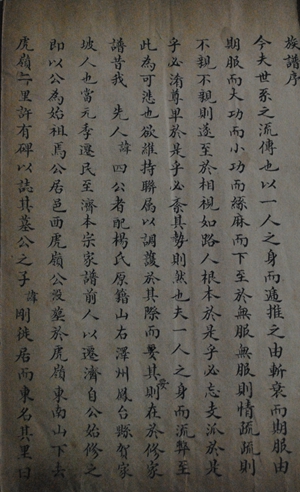 族譜序
今夫世系之流傳也以一人之身而遞推之由斬衰而期服由
期服而大功而小功而緦麻而下至於無服無服則情疏疏則
不親不親則遂至於相視如路人根本於是乎必忘支派於是
乎必淆尊卑於是乎必紊其勢則然也夫一人之身而流弊至
此為可悲也欲維持聯属以調護於其際而要其則在於修家
安
譜昔我 先人諱四公者配楊氏原籍山右澤州鳳台縣賀家
坡人也當元季遷民至濟本宗家譜前人以遷濟自公始修之
即以公為始祖焉公居邑西虎嶺公沒塟於虎嶺東南山下去
虎嶺二里許有碑以誌其墓公之子諱剛徙居而東名其里曰